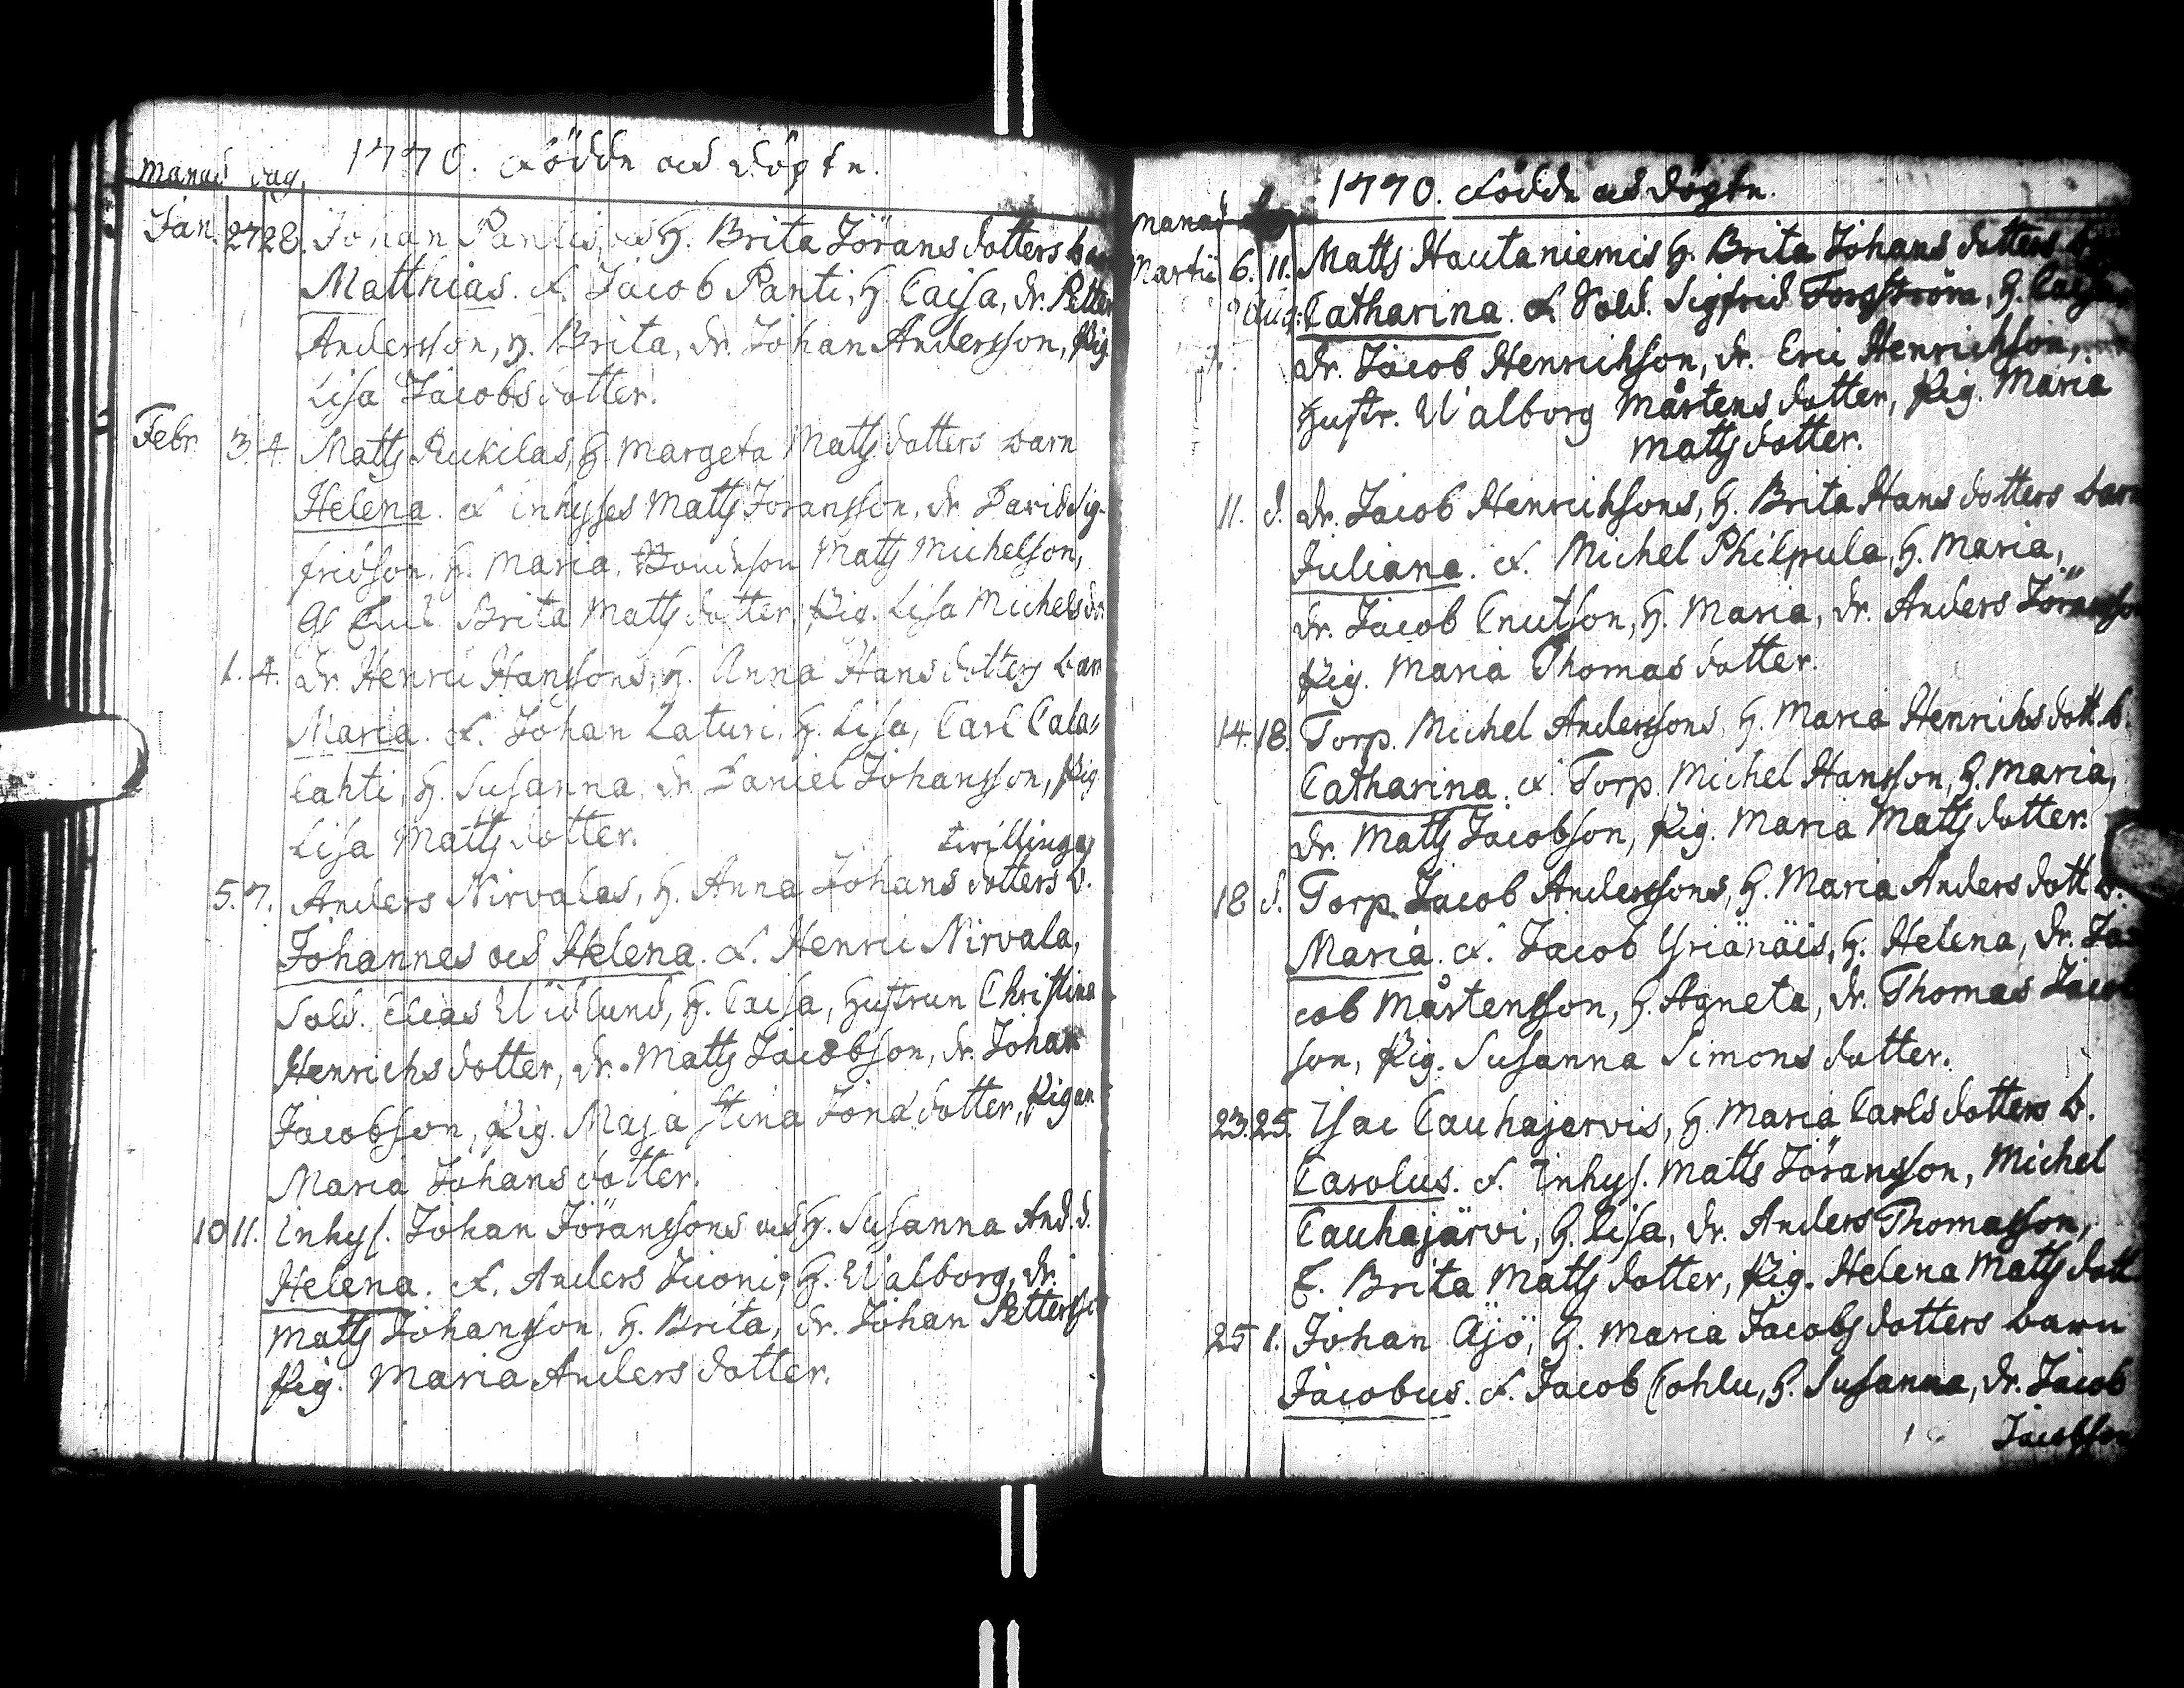 1770. Födde och Döpte.
Månad dag.
Jan. 27 28. Johan Pantis, och H. Brita Jörans dotters barn
Matthias. F. Jacob Panti, H. Caisa, dr. Petter
Andersson, H. Brita, dr. Johan Andersson, Pig.
Lisa Jacobs dotter.
Febr. 3. 4. Matts H. Margeta Matts dotters barn
Helena. F. Inhyses Matts Joransson, dr. David Sig-
fridson, H. Maria, Matts Michelson,
Brita Matts dotter, Pig. Lisa Michels dr.
1. 4. Dr. Henric Hanssons, H. Anna Hans dotters barn
Maria. F. Johan Laturi, H. Lisa, Carl Cala-
lahti, H. Susanna, dr. Daniel Johansson, Pig.
Lisa Matts dotter. tvillingar
5. 7. Anders Nirvalas, H. Anna Johans dotters b.
Johannes och Helena. F. Henric Nirvala,
Sold. Elias Widlund, H. Caisa, Hustrun Christina
Henrichs dotter, dr. Matts Jacobson, dr. Johan
Jacobson, Pig. Maja Stina Jona dotter, Pigan
Maria Johans dotter.
10 11. Inhys. Johan Jöranssons och H. Susanna And. d.
Helena. F. Anders Luoni, H. Walborg, dr.
Matts Johansson, H. Brita, dr. Johan Petterson
Pig. Maria Anders dotter.
1770. Födde och Döpte.
Månad
Martii 6. 11. Matts Hautaniemis H. Brita Johans dotters
Catharina. F. Sold. Sigfrid Forsström, H.
Dr. Jacob Henrichson, dr. Eric Henrichson,
Hustr. Walborg Mårtens dotter, Pig. Maria
Matts dotter.
11. d. Dr. Jacob Henrichsons, H. Brita Hans dotters barn
Juliana. F. Michel Philpula, H. Maria,
Dr. Jacob Cnutson, H. Maria, dr. Anders Jöransson
Pig. Maria Thomas dotter.
14. 18. Torp. Michel Anderssons, H. Maria Henrichs dott. b.
Catharina. F. Torp. Michel Hansson, H. Maria,
Dr. Matts Jacobson, Pig. Maria Matts dotter.
18 d. Torp. Jacob Anderssons, H. Maria Anders dott b.
Maria. F. Jacob Yriänäis, H. Helena, dr. Ja-
cob Mårtensson, H. Agneta, dr. Thomas Jacob
son, Pig. Susanna Simons dotter.
23. 25. Isac Cauhajervis, H. Maria Carls dotters b.
Carolus. F. Inhys. Matts Jöransson, Michel
Cauhajärvi, H. Lisa, dr. Anders Thomasson,
E. Brita Matts dotter, Pig. Helena Matts dott
25 1. Johan Ajö, H. Maria Jacobs dotters barn
Jacobus. F. Jacob Cohlu, H. Susanna, dr. Jacob
Jacobson